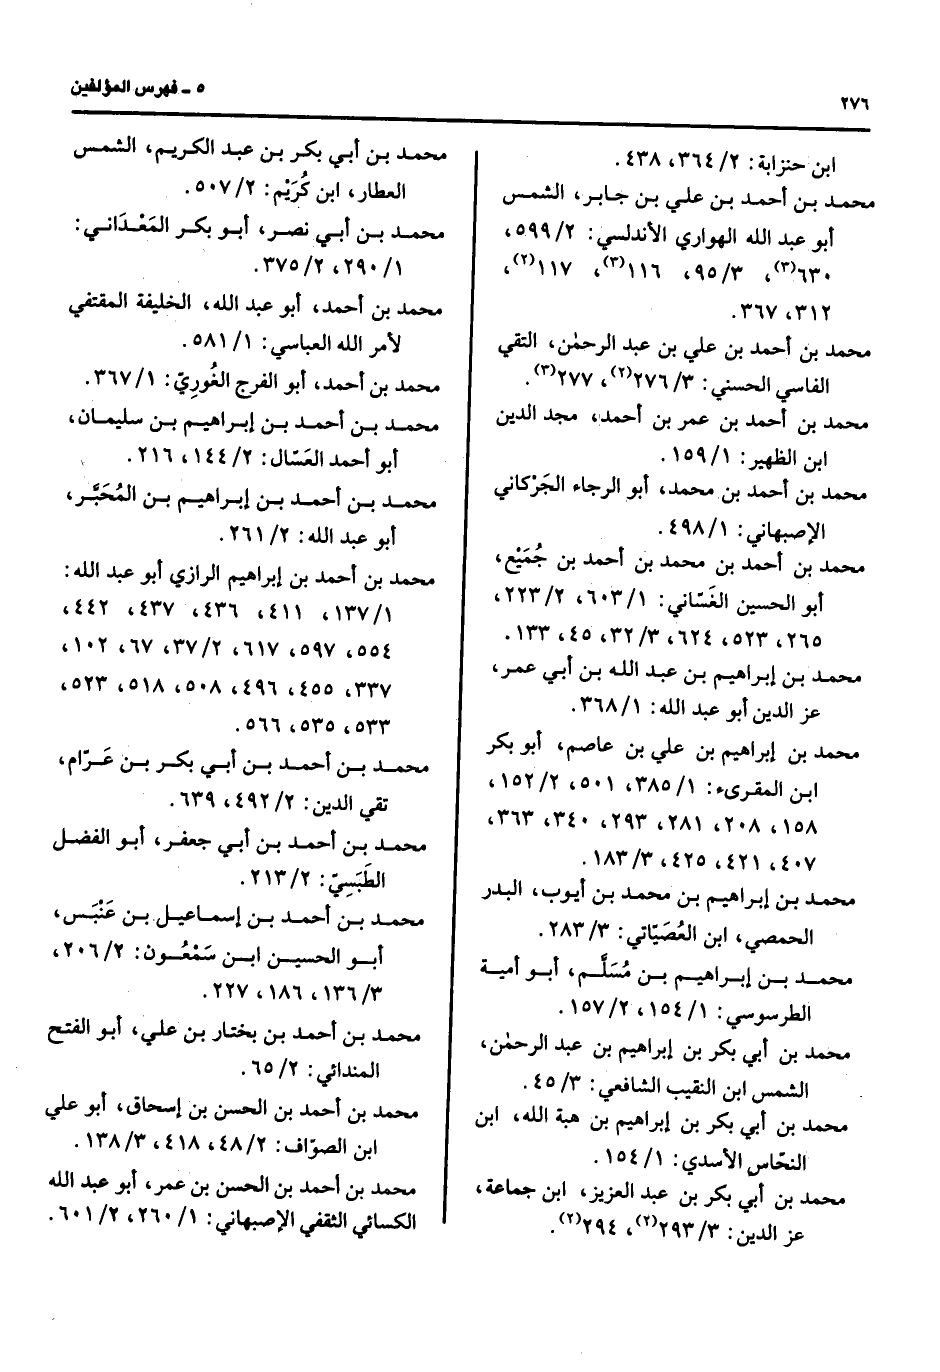 ٢٧٦
٥ ـ فهرس المؤلفين
ابن حنزابة: ٣٦٤/٢، ٤٣٨.
محمد بن أحمد بن علي بن جابر، الشمس
أبو عبد الله الهواري الأندلسي: ٥٩٩/٢،
٦٣٠(٣)، ٩٥/٣، ١١٦(٣)، ١١٧(٢)،
٣١٢، ٣٦٧.
محمد بن أحمد بن علي بن عبد الرحمٰن، التقي
الفاسي الحسني: ٢٧٦/٣(٢)، ٢٧٧(٣).
محمد بن أحمد بن عمر بن أحمد، مجد الدين
ابن الظهير: ١٥٩/١.
محمد بن أحمد بن محمد، أبو الرجاء الجَرْكاني
الإصبهاني: ٤٩٨/١.
محمد بن أحمد بن محمد بن أحمد بن جُمَيْع،
أبو الحسين الغَسّاني: ٦٠٣/١، ٢٢٣/٢،
٢٦٥، ٥٢٣، ٦٢٤، ٣٢/٣، ٤٥، ١٣٣.
محمد بن إبراهيم بن عبد الله بن أبي عمر،
عز الدين أبو عبد الله: ٣٦٨/١.
محمد بن إبراهيم بن علي بن عاصم، أبو بكر
ابن المقرىء: ٣٨٥/١، ٥٠١، ١٥٢/٢،
١٥٨، ٢٠٨، ٢٨١، ٢٩٣، ٣٤٠، ٣٦٣،
٤٠٧، ٤٢١، ٤٢٥، ١٨٣/٣.
محمد بن إبراهيم بن محمد بن أيوب، البدر
الحمصي، ابن العُصَيّاتي: ٢٨٣/٣.
محمد بن إبراهيم بن مُسَلَّم، أبو أمية
الطرسوسي: ١٥٤/١، ١٥٧/٢.
محمد بن أبي بكر بن إبراهيم بن عبد الرحمٰن،
الشمس ابن النقيب الشافعي: ٤٥/٣.
محمد بن أبي بكر بن إبراهيم بن هبة الله، ابن
النحّاس الأسدي: ١٥٤/١.
محمد بن أبي بكر بن عبد العزيز، ابن جماعة،
عز الدين: ٢٩٣/٣(٢)، ٢٩٤(٢).
محمد بن أبي بكر بن عبد الكريم، الشمس
العطار، ابن كُرَيْم: ٥٠٧/٢.
محمد بن أبي نصر، أبو بكر المَعْدَاني:
٢٩٠/١، ٣٧٥/٢.
محمد بن أحمد، أبو عبد الله، الخليفة المقتفي
لأمر الله العباسي: ٥٨١/١.
محمد بن أحمد، أبو الفرج الغُوريّ: ٣٦٧/١.
محمد بن أحمد بن إبراهيم بن سليمان،
أبو أحمد العَسّال: ١٤٤/٢، ٢١٦.
محمد بن أحمد بن إبراهيم بن المُحَبَّر،
أبو عبد الله: ٢٦١/٢.
محمد بن أحمد بن إبراهيم الرازي أبو عبد الله:
١٣٧/١، ٤١١، ٤٣٦، ٤٣٧، ٤٤٢،
٥٥٤، ٥٩٧، ٦١٧، ٣٧/٢، ٦٧، ١٠٢،
٣٣٧، ٤٥٥، ٤٩٦، ٥٠٨، ٥١٨، ٥٢٣،
٥٣٣، ٥٣٥، ٥٦٦.
محمد بن أحمد بن أبي بكر بن عَرّام،
تقي الدين: ٤٩٢/٢، ٦٣٩.
محمد بن أحمد بن أبي جعفر، أبو الفضل
الطَبَسِيّ: ٢١٣/٢.
محمد بن أحمد بن إسماعيل بن عَنْبَس،
أبو الحسين ابن سَمْعُون: ٢٠٦/٢،
١٣٦/٣، ١٨٦، ٢٢٧.
محمد بن أحمد بن بختار بن علي، أبو الفتح
المندائي: ٦٥/٢.
محمد بن أحمد بن الحسن بن إسحاق، أبو علي
ابن الصوّاف: ٤٨/٢، ٤١٨، ١٣٨/٣.
محمد بن أحمد بن الحسن بن عمر، أبو عبد الله
الكسائي الثقفي الإصبهاني: ٢٦٠/١، ٦٠١/٢.